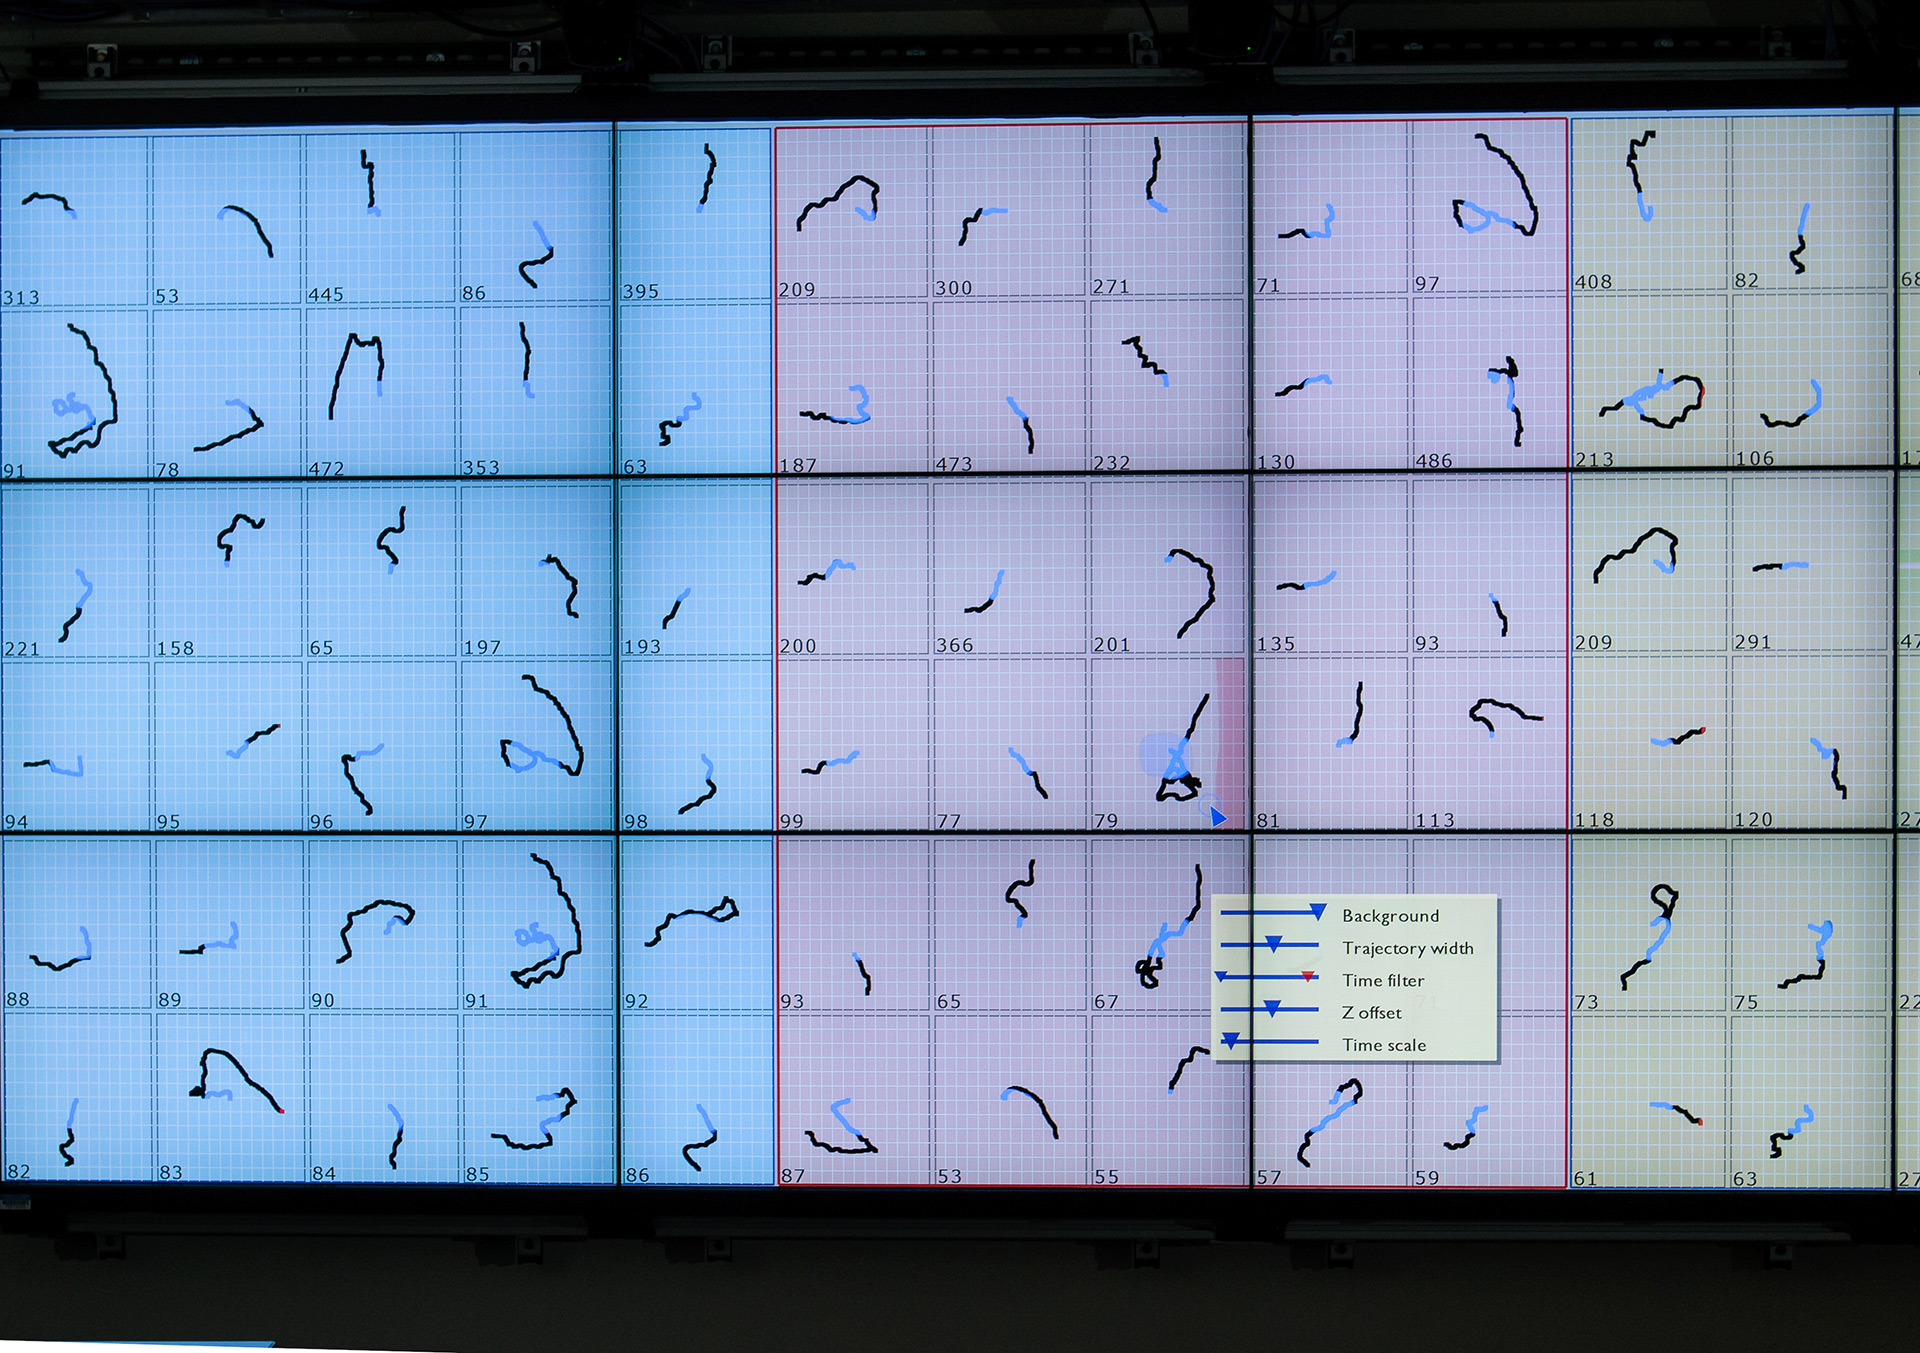 313 53 445 86 395 209 300 271 71 97 408 82 68
91 78 472 353 63 187 473 232 130 486 213 106
221 158 65 197 193 200 366 201 135 93 209 291 47
94 95 96 97 98 99 77 79 81 113 118 120 27
Background
Trajectory width
Time filter
Z offset
Time scale
88 89 90 91 92 93 65 67 71 73 75 22
82 83 84 85 86 87 53 55 57 59 61 63 27